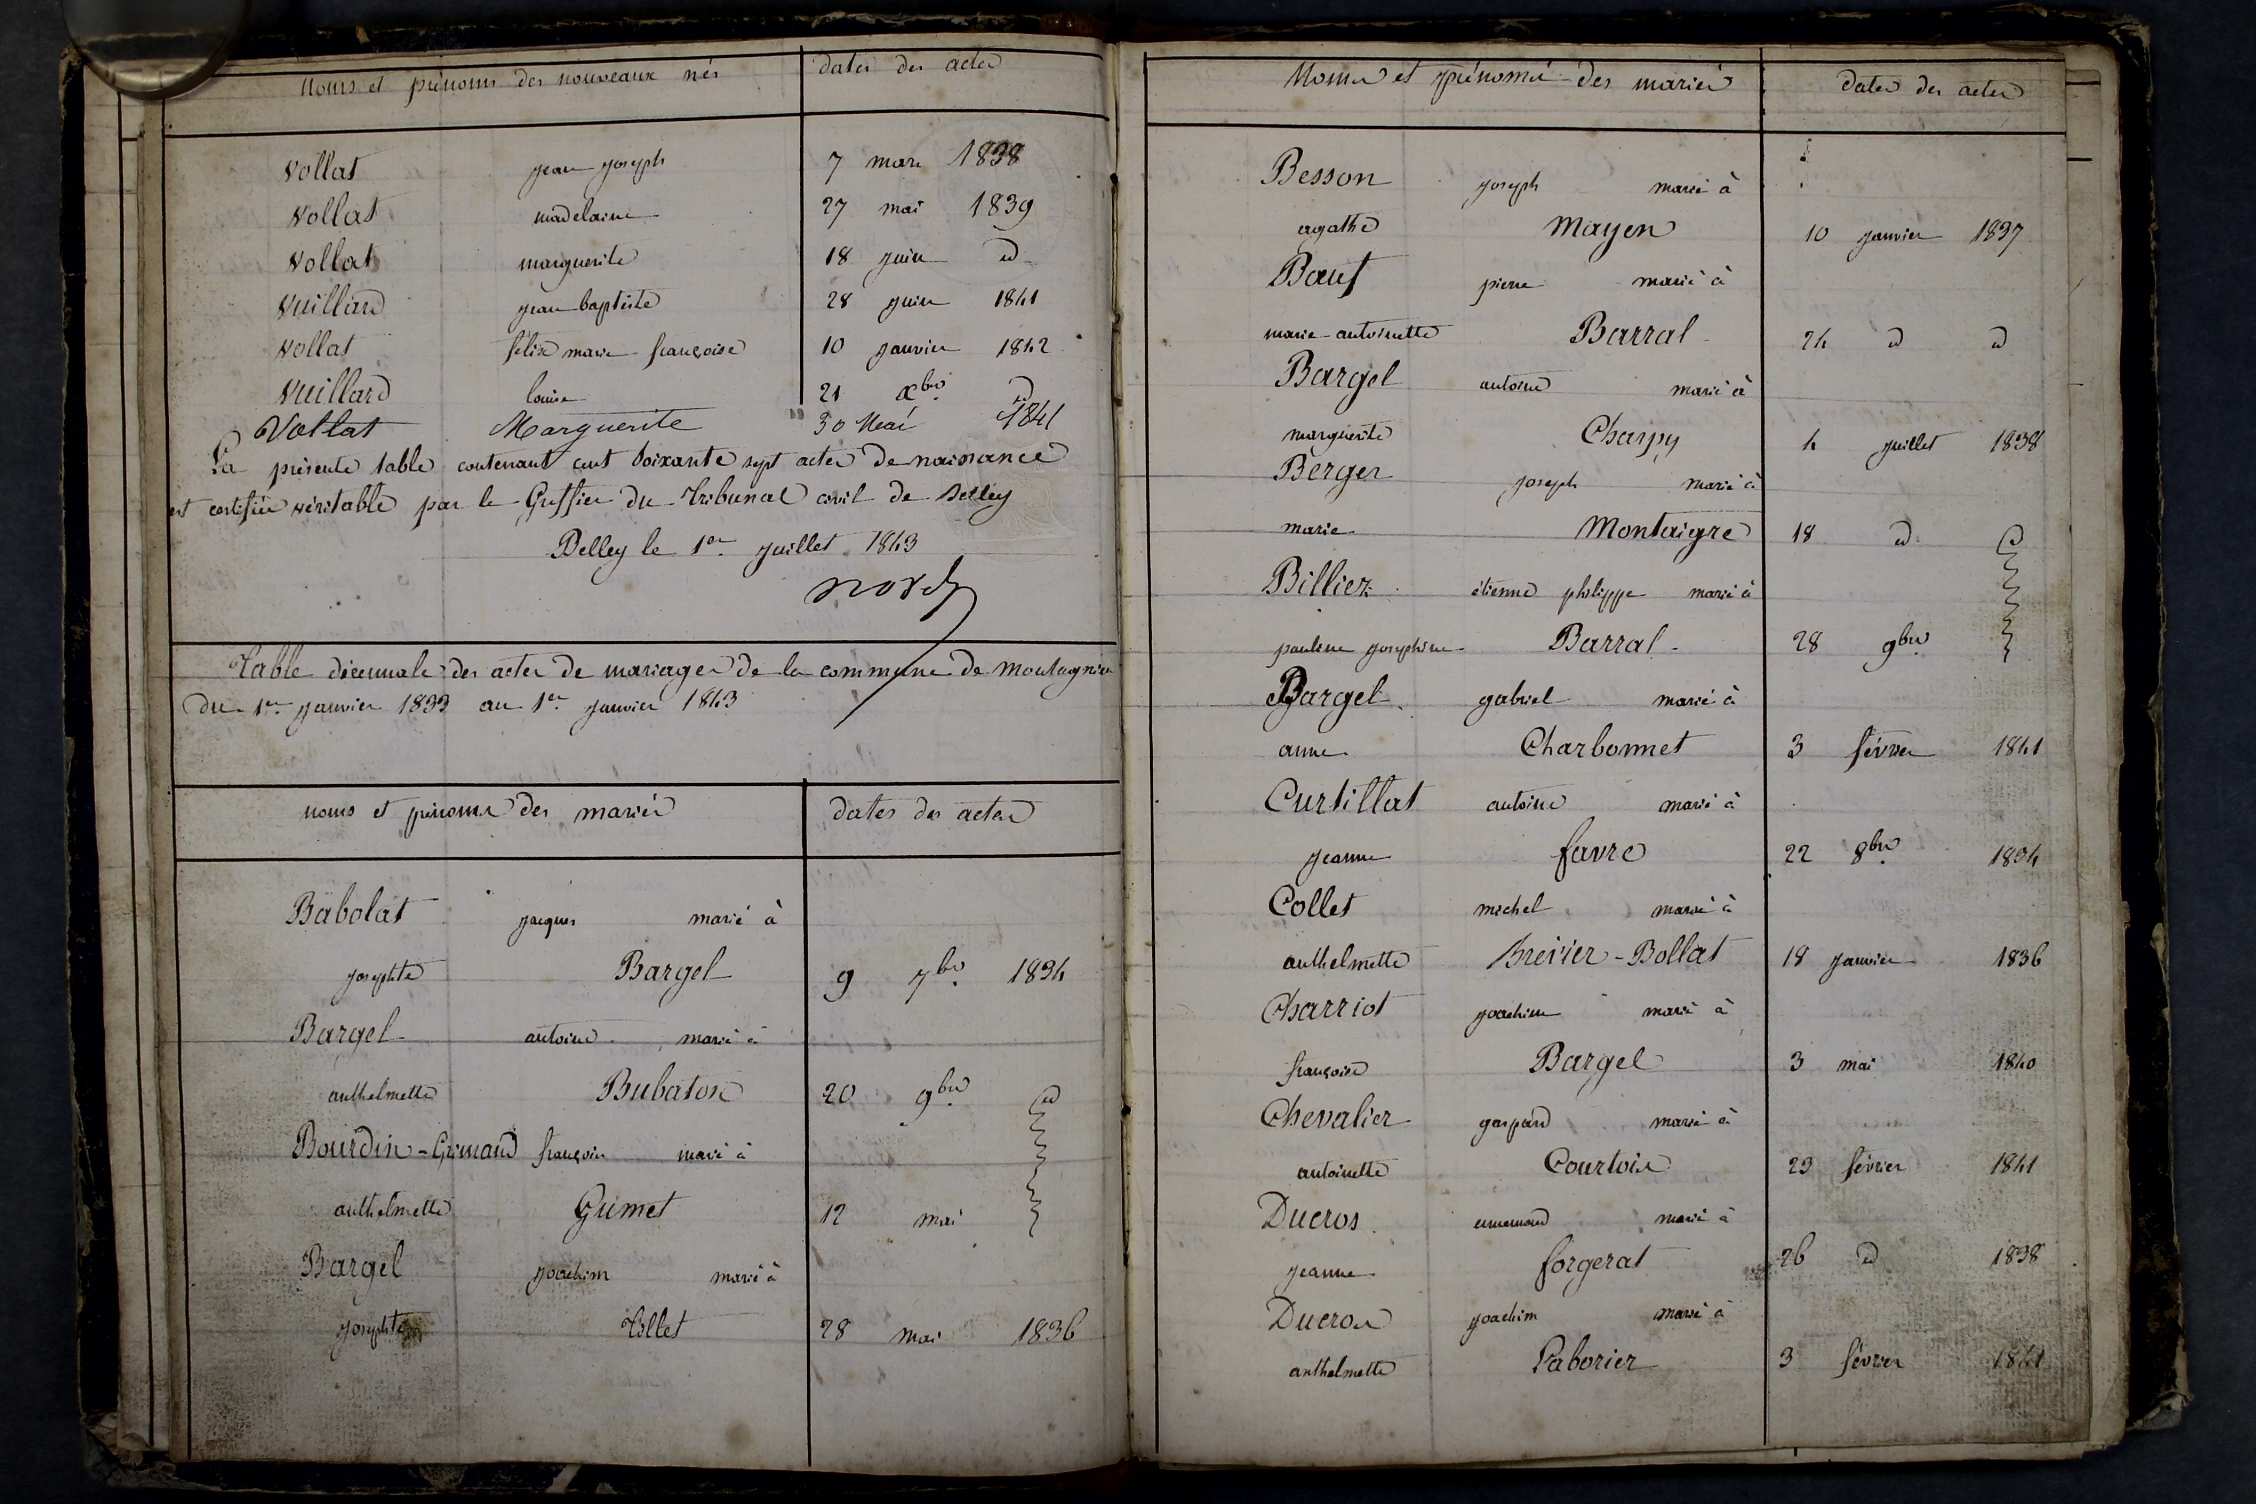 noms et prénoms des nouveaux nés dates des actes
Vollat jean joseph 7 mars 1838
Vollat madelaine 27 mai 1839
Vollat marguerite 18 juin d
Vuillard jean baptiste 28 juin 1841
Vollat félise marie françoise 10 janvier 1842
Vuillard louise 21 Xbre d
Vollat Marguerite 30 Mai 1841
La présente table contenant cent soixante sept actes de naissance
est certifiée véritable par le Greffier du Tribunal civil de Belley
Belley le 1er juillet 1843
Table décennale des actes de mariages de la commune de montagnieu
du 1er janvier 1833 au 1er janvier 1843
noms et prénoms des mariés dates des actes
Babolat jacques marié à
josephte Bargel 9 7bre 1834
Bargel antoine marié à
anthelmette Bubaton 20 9bre d
Bourdin-Grimaud françois marié à
anthelmette Guimet 12 mai
Bargel joachim marié à
josephte Tillet 28 mai 1836
Noms et prénoms des mariés dates des actes
Besson joseph marié à
agathe Mayen 10 janvier 1837
Bauf pierre marié à
marie-antoinette Barral 24 d d
Bargel antoine marié à
marguerite Charpy 4 juillet 1838
Berger joseph marié à
marie Montaigre 18 d d
Billiez étienne philippe marié à
pauline josephine Barral 28 9bre
Bargel gabriel marié à
anne Charbonnet 3 février 1841
Curtillat antoine marié à
jeanne favre 22 8bre 1834
Collet michel marié à
anthelmette Brevier-Bollat 18 janvier 1836
Charriot joachim marié à
françoise Bargel 3 mai 1840
Chevalier gaspard marié à
antoinette Courtois 23 février 1841
Ducros ennemond marié à
jeanne forgerat 26 d 1838
Ducros joachim marié à
anthelmette Laborier 3 février 1841